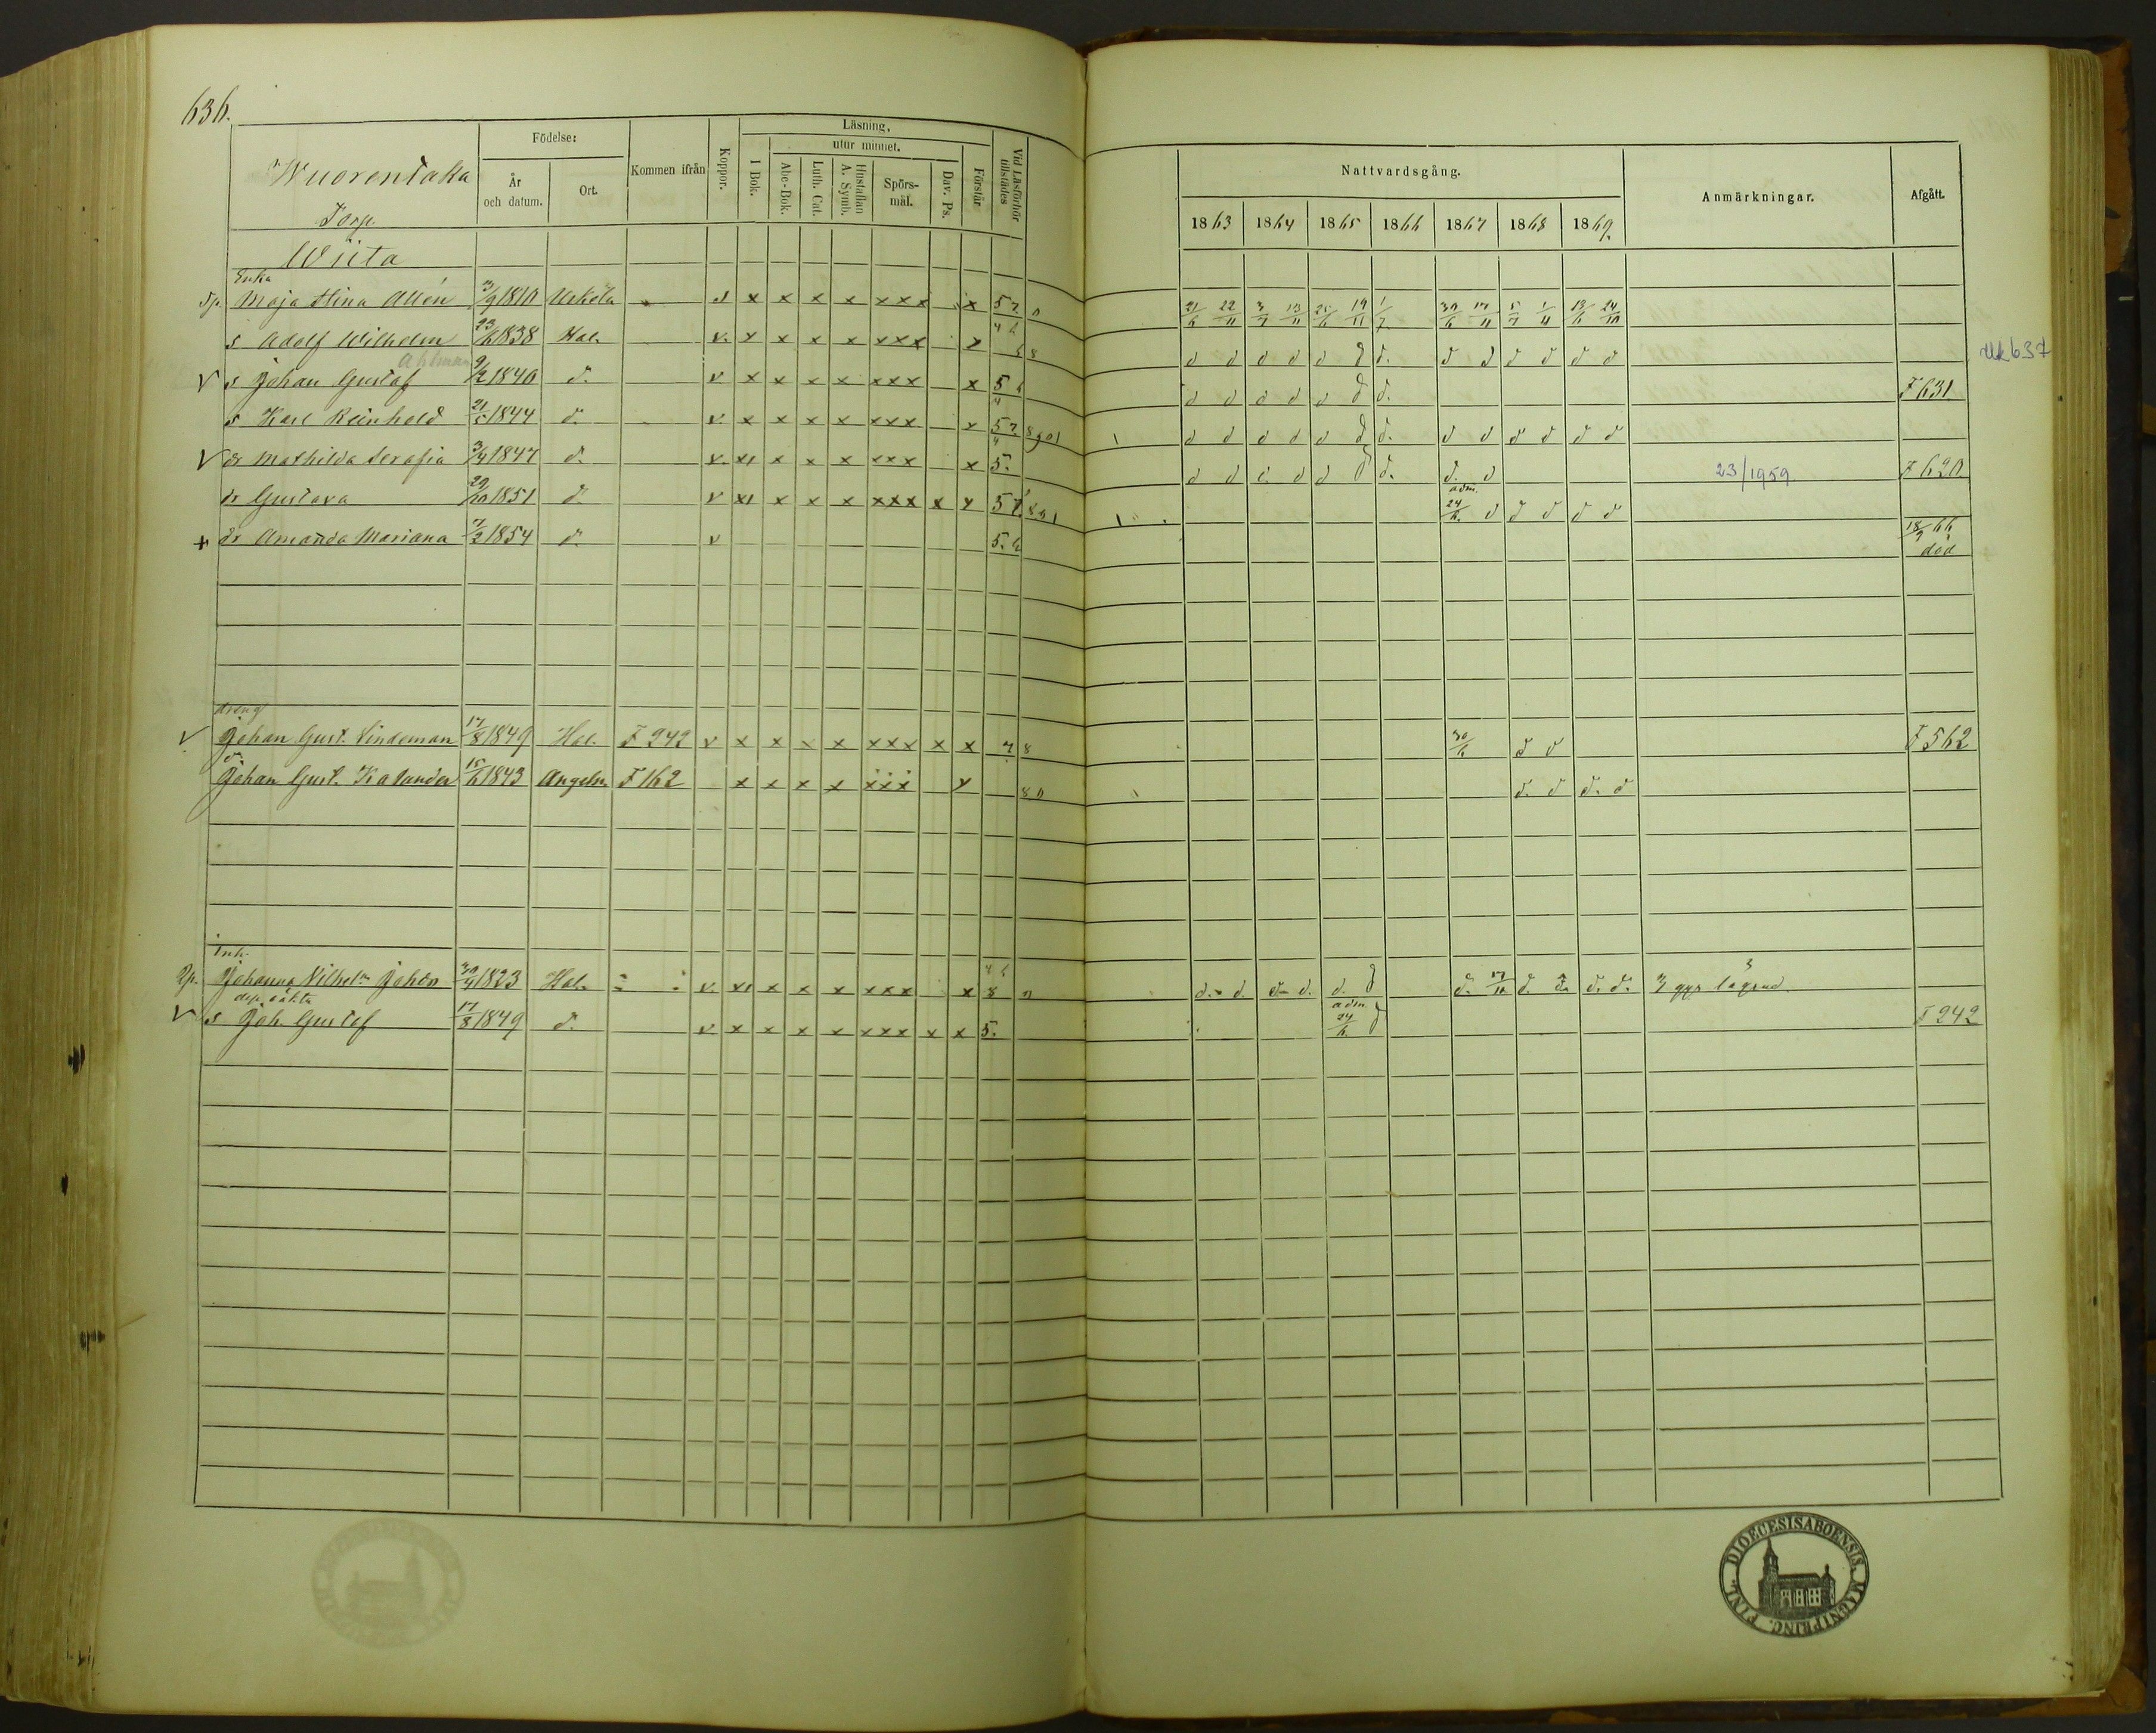 636.
Wuorentaka
Torp.
Födelse:
År och datum.
Ort.
Kommen ifrån
Koppor.
Läsning.
I Bok.
utur minnet.
Abc-Bok.
Luth. Cat.
Hustaflan A. Symb.
Spörs-mål.
Dav. Ps.
Förstår
Vid Läsförhör tillstädes
Nattvardsgång.
1863 1864 1865 1866 1867 1868 1869.
Anmärkningar.
Afgått.
Wiita
Enka
Maja Stina Allén 1810 x x x x xxx x 21/6 22/11 3/7 13/11 25/6 19/11 1/7 30/6 17/11 5/7 1/11 13/6 24/10
s Adolf Wilhelm 23/6 1838 Hal. v. x x x x xxx x d d d d d d d. d d d d d d Uk 637
Ahlman
v s Johan Gustaf 9/2 1840 d. v x x x x xxx x 5 d d d d d d d. F 631
s Karl Reinhold 21/5 1844 d. v. x x x x xxx x d d d d d d d. d d d d d d
v dr Mathilda Serafia 3/4 1847 d. v. x x x xxx x 5. d d d d d d d. d. d 23/1959 F 620
adm.
dr Gustava 29/10 1851 d. v x x x xxx x x 24/6 d d d d d
+ dr Amanda Mariana 1854 d. v 18/9 66 död
dreng
v Johan Gust. Lindeman 17/8 1849 Hal. F 242 v x x x x xxx x x 7 8 30/6 d d F 562
d.
Johan Gust. Kalander 15/6 1843 Angeln. F 162 x x x x xxx x d. d d. d
Inh.
Johanna Vilhel:a Johan 30/4 1823 Hal. v x x x xxx x 8 d. d. d. d. d. d d. 17/11 d. d. d. d. 3 ggr lägrad
oäkta adm.
v s Joh. Gustaf 17/8 1849 d. v x x x x x xxx x x 5. 24/6 d F 242
DIOECESIS ABOENSIS. MAGNI PRINC. FINL.